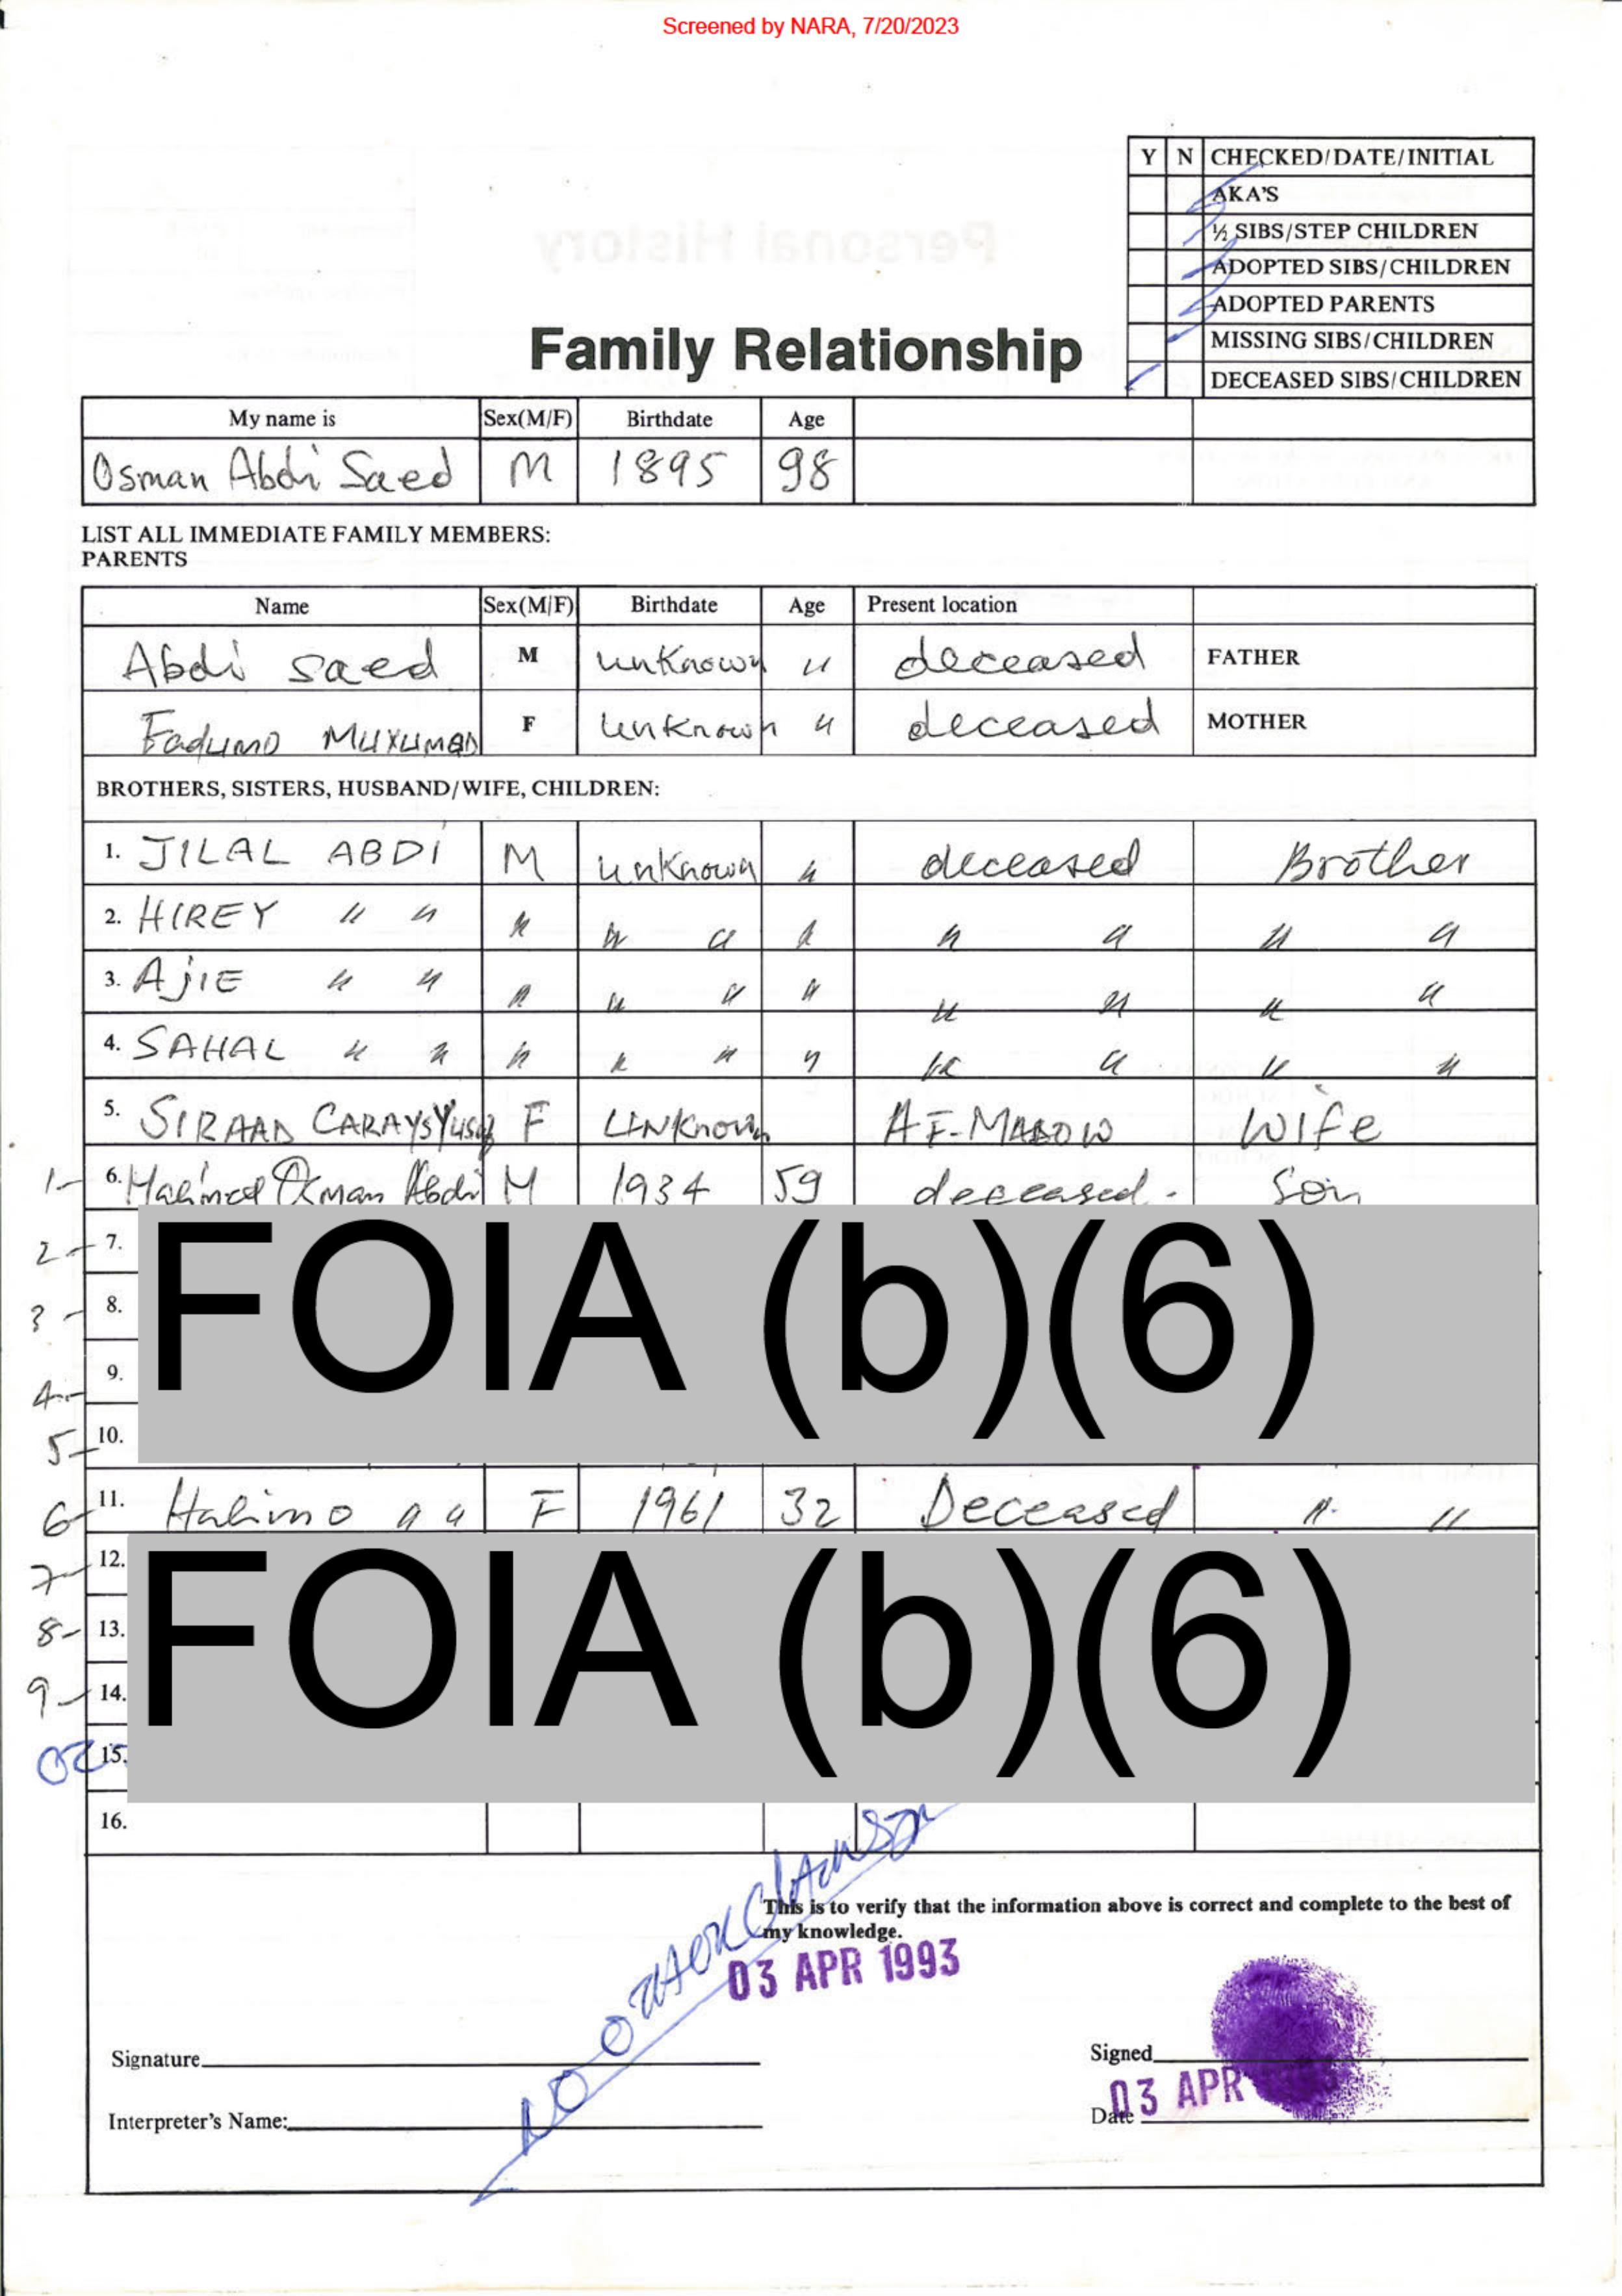 Screened by NARA, 7/20/2023
Y N CHECKED/DATE/INITIAL
AKA'S
½ SIBS/STEP CHILDREN
ADOPTED SIBS/CHILDREN
ADOPTED PARENTS
MISSING SIBS/CHILDREN
DECEASED SIBS/CHILDREN
Family Relationship
My name is Sex(M/F) Birthdate Age
Osman Abdi Saed M 1895 98
LIST ALL IMMEDIATE FAMILY MEMBERS:
PARENTS
Name Sex(M/F) Birthdate Age Present location
Abdi saed M unknown " deceased FATHER
Fadumo MUXUMAD F Unknown " deceased MOTHER
BROTHERS, SISTERS, HUSBAND/WIFE, CHILDREN:
1. JILAL ABDI M unknown " deceased Brother
2. HIREY " " " " " " " " " "
3. AJIE " " " " " " " " " "
4. SAHAL " " " " " " " " " "
5. SIRAAD CARAYS Yusuf F UNKnown AF-MADOW Wife
1- 6. Osman Abdi M 1934 59 deceased. Son
2- 7.
3- 8.
4- 9.
5- 10.
FOIA (b)(6)
6- 11. Halimo " " F 1961 32 Deceased " "
7- 12.
8- 13.
9- 14.
15.
FOIA (b)(6)
16.
NO OTHER
This is to verify that the information above is correct and complete to the best of
my knowledge.
03 APR 1993
Signature Signed
03 APR
Interpreter's Name: Date